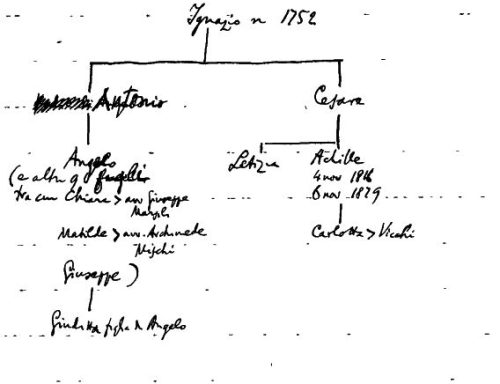 Ignazio n 1752
Antonio
Cesare
Angelo
Letizia
Achille
(e altri 9 figli
4 nov 1816
tra cui Chiara > avv Giuseppe
6 nov 1879
Matilde > avv. Archimede
Carlotta >
Giuseppe )
Giuditta figlia di Angelo